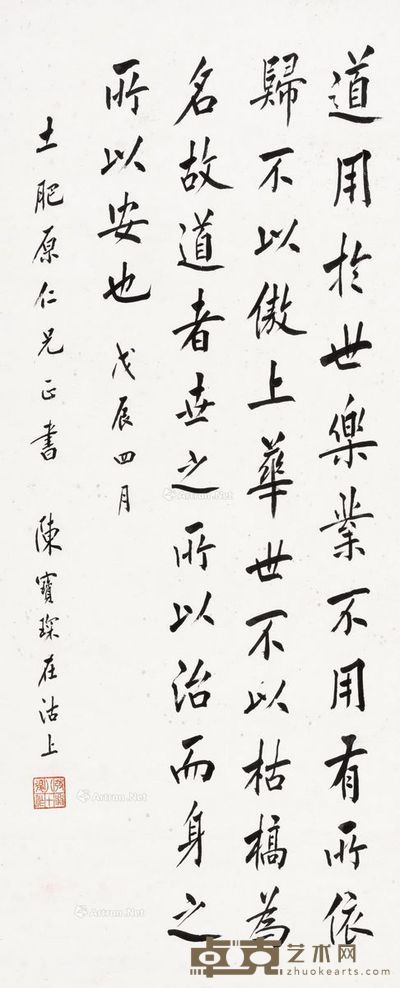 道用於世樂業不用有所依
歸不以傲上華世不以枯槁為
名故道者世之所以治而身之
所以安也 戊辰四月
土肥原仁兄正書 陳寶琛在沽上
Artron.Net
Artron.Net
Artron.Net
Artron.Net
卓克艺术网
zhuokearts.com